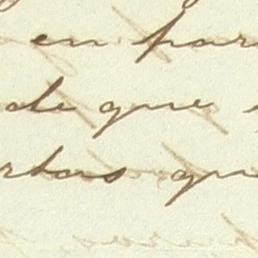 en par
de que
rtas qu